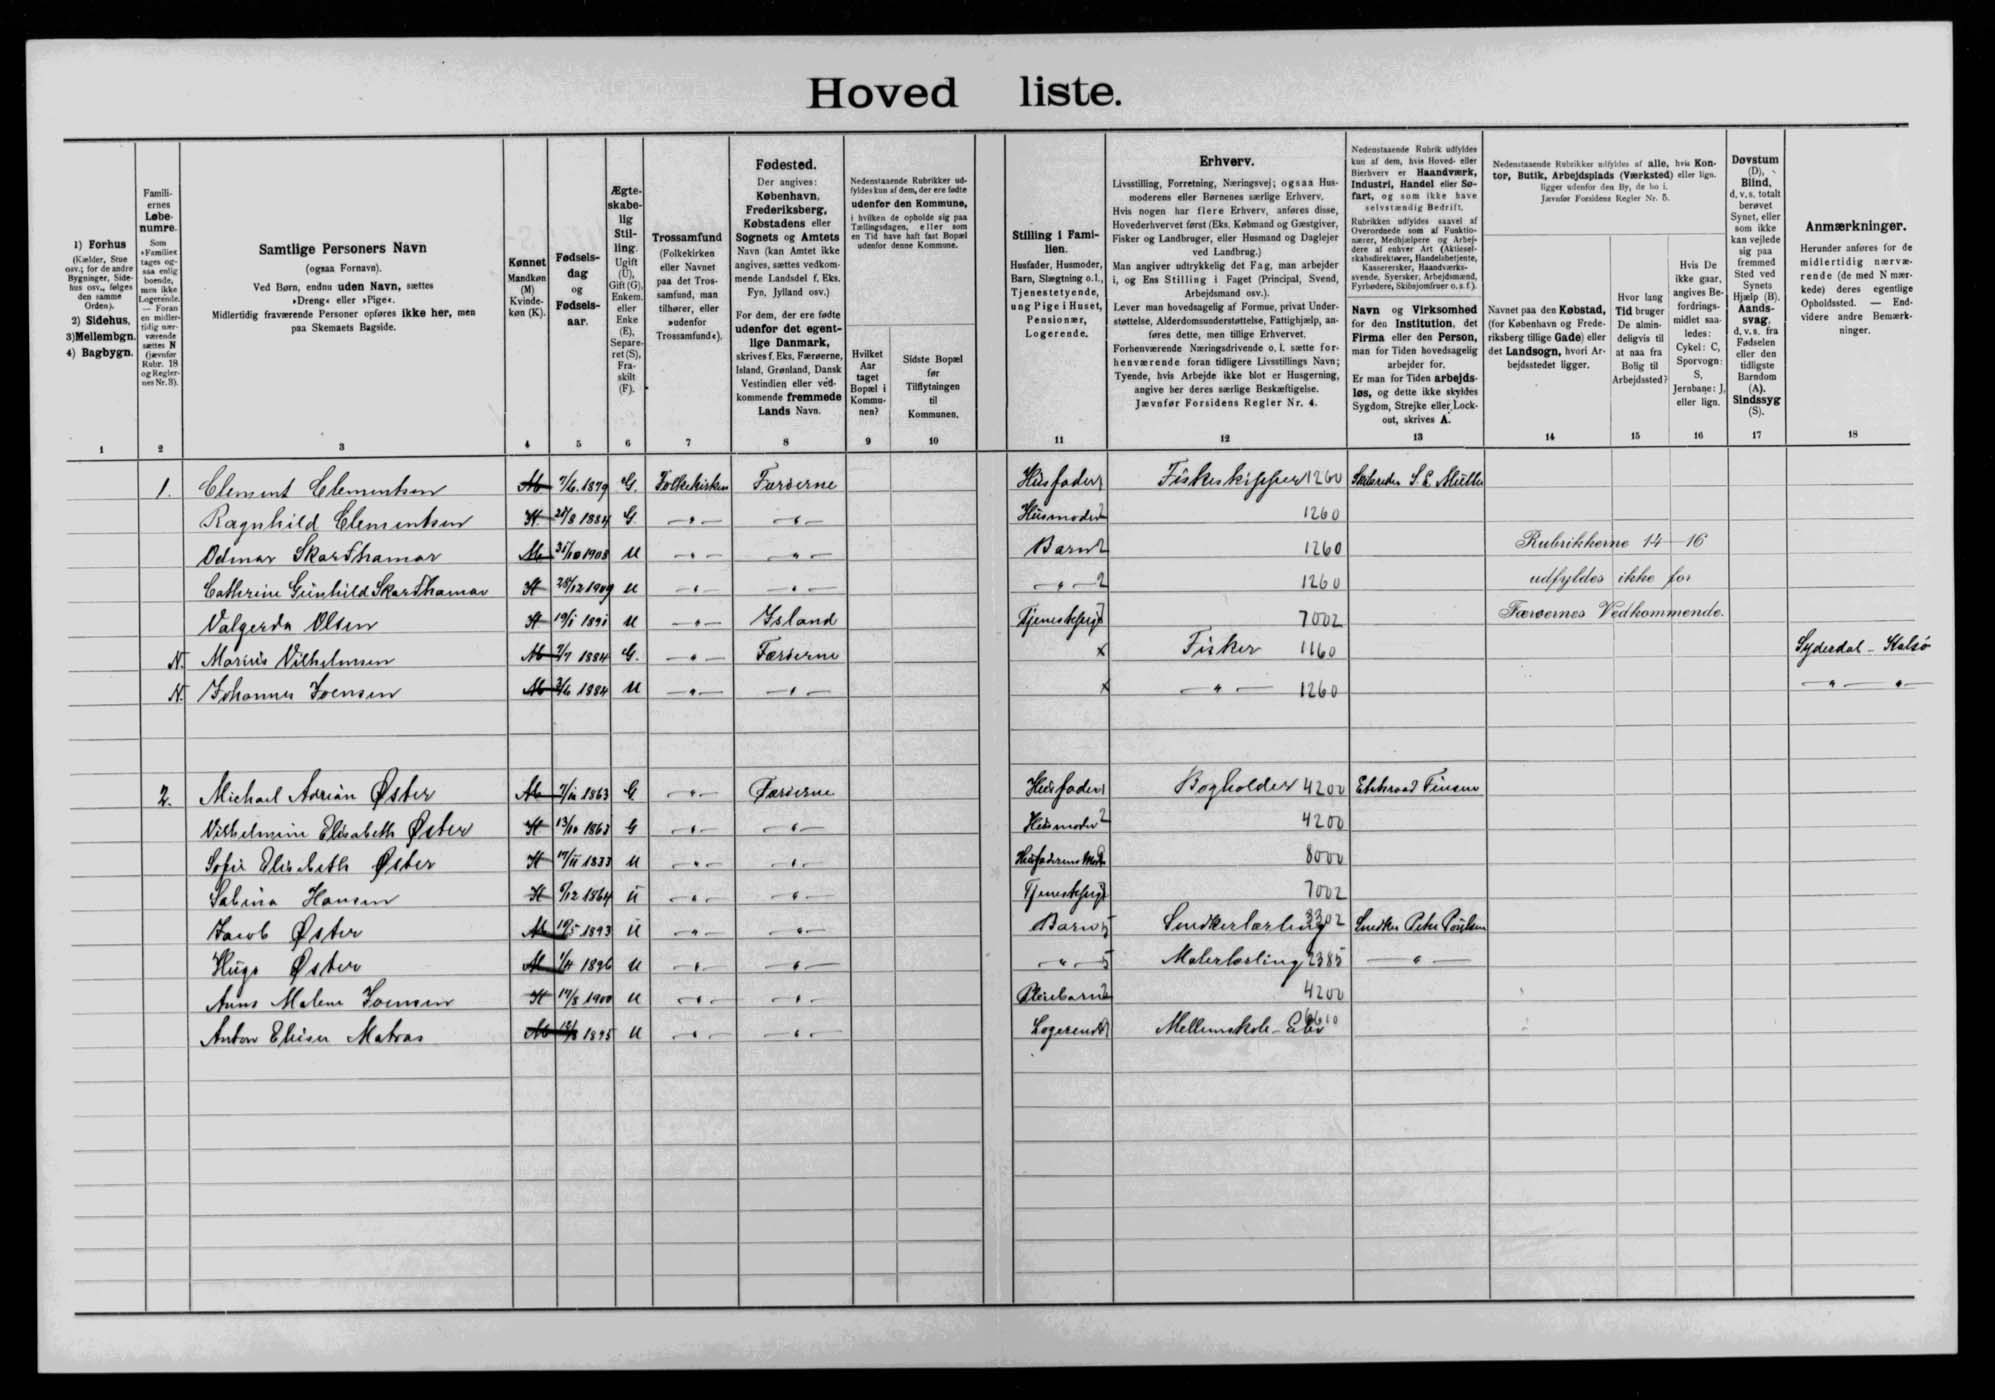 Hoved liste.
1) Forhus
(Kælder, Stue
osv.; for de andre
Bygninger, Side-
hus osv., følges
den samme
Orden).
2) Sidehus,
3) Mellembgn.
4) Bagbygn.
1
Famili-
ernes
Løbe-
numre.
Som
»Familie«
tages og-
saa enlig
boende,
men ikke
Logerende.
— Foran
en midler-
tidig nær-
værende
sættes N
(jævnfør
Rubr. 18
og Regler-
nes Nr. 3).
2
Samtlige Personers Navn
(ogsaa Fornavn).
Ved Børn, endnu uden Navn, sættes
»Dreng« eller »Pige«.
Midlertidig fraværende Personer opføres ikke her, men
paa Skemaets Bagside.
3
Kønnet
Mandkøn
(M)
Kvinde-
køn (K).
4
Fødsels-
dag
og
Fødsels-
aar.
5
Ægte-
skabe-
lig
Stil-
ling.
Ugift
(U),
Gift (G),
Enkem.
eller
Enke
(E),
Separe-
ret (S),
Fra-
skilt
(F).
6
Trossamfund
(Folkekirken
eller Navnet
paa det Tros-
samfund, man
tilhører, eller
»udenfor
Trossamfund«).
7
Fødested.
Der angives:
København,
Frederiksberg,
Købstadens eller
Sognets og Amtets
Navn (kan Amtet ikke
angives, sættes vedkom-
mende Landsdel f. Eks.
Fyn, Jylland osv.)
For dem, der ere fødte
udenfor det egent-
lige Danmark,
skrives f. Eks. Færøerne,
Island, Grønland, Dansk
Vestindien eller ved-
kommende fremmede
Lands Navn.
8
Nedenstaaende Rubrikker ud-
fyldes kun af dem, der ere fødte
udenfor den Kommune,
i hvilken de opholde sig paa
Tællingsdagen, eller som
en Tid have haft fast Bopæl
udenfor denne Kommune.
Hvilket
Aar
taget
Bopæl i
Kommu-
nen?
9
Sidste Bopæl
før
Tilflytningen
til
Kommunen.
10
Stilling i Fami-
lien.
Husfader, Husmoder,
Barn, Slægtning o. l.,
Tjenestetyende,
ung Pige i Huset,
Pensionær,
Logerende.
11
Erhverv.
Livsstilling, Forretning, Næringsvej; ogsaa Hus-
moderens eller Børnenes særlige Erhverv.
Hvis nogen har flere Erhverv, anføres disse,
Hovederhvervet først (Eks. Købmand og Gæstgiver,
Fisker og Landbruger, eller Husmand og Daglejer
ved Landbrug.)
Man angiver udtrykkelig det Fag, man arbejder
i, og Ens Stilling i Faget (Principal, Svend,
Arbejdsmand osv.).
Lever man hovedsagelig af Formue, privat Under-
støttelse, Alderdomsunderstøttelse, Fattighjælp, an-
føres dette, men tillige Erhvervet.
Forhenværende Næringsdrivende o. l. sætte for-
henværende foran tidligere Livsstillings Navn;
Tyende, hvis Arbejde ikke blot er Husgerning,
angive her deres særlige Beskæftigelse.
Jævnfør Forsidens Regler Nr. 4.
12
Nedenstaaende Rubrik udfyldes
kun af dem, hvis Hoved- eller
Bierhverv er Haandværk,
Industri, Handel eller Sø-
fart, og som ikke have
selvstændig Bedrift.
Rubrikken udfyldes saavel af
Overordnede som af Funktio-
nærer, Medhjælpere og Arbej-
dere af enhver Art (Aktiesel-
skabsdirektører, Handelsbetjente,
Kasserersker, Haandværks-
svende, Syersker, Arbejdsmænd,
Fyrbødere, Skibsjomfruer o. s. f.).
Navn og Virksomhed
for den Institution, det
Firma eller den Person,
man for Tiden hovedsagelig
arbejder for.
Er man for Tiden arbejds-
løs, og dette ikke skyldes
Sygdom, Strejke eller Lock-
out, skrives A.
13
Nedenstaaende Rubrikker udfyldes af alle, hvis Kon-
tor, Butik, Arbejdsplads (Værksted) eller lign.
ligger udenfor den By, de bo i.
Jævnfør Forsidens Regler Nr. 5.
Navnet paa den Købstad,
(for København og Frede-
riksberg tillige Gade) eller
det Landsogn, hvori Ar-
bejdsstedet ligger.
14
Hvor lang
Tid bruger
De almin-
deligvis til
at naa fra
Bolig til
Arbejdssted?
15
Hvis De
ikke gaar,
angives Be-
fordrings-
midlet saa-
ledes:
Cykel: C,
Sporvogn:
S,
Jernbane: J,
eller lign.
16
Døvstum
(D),
Blind,
d. v. s. totalt
berøvet
Synet, eller
som ikke
kan vejlede
sig paa
fremmed
Sted ved
Synets
Hjælp (B).
Aands-
svag,
d. v. s. fra
Fødselen
eller den
tidligste
Barndom
(A),
Sindssyg
(S).
17
Anmærkninger.
Herunder anføres for de
midlertidig nærvæ-
rende (de med N mær-
kede) deres egentlige
Opholdssted. — End-
videre andre Bemærk-
ninger.
18
1. Clement Clementsen M 7/6 1879 G. Folkekirken Færöerne Husfader 1 Fiskeskipper 1260 Skibsreder S. E. Müller
Ragnhild Clementsen K 28/8 1884 G. —"— —"— Husmoder 2 1260
Odmar Skarðhamar M 31/10 1908 U —"— —"— Barn 2 1260 Rubrikkerne 14—16
Cathrine Gunhild Skarðhamar K 28/12 1909 U —"— —"— —"— 2 1260 udfyldes ikke for
Valgerda Olsen K 19/1 1891 U —"— Island Tjenestepige 7002 Færøernes Vedkommende.
N. Marius Vilhelmsen M 2/7 1884 G. —"— Færöerne x Fisker 1160 Syderdal - Kalsö
N. Johannes Joensen M 3/6 1884 U —"— —"— x —"— 1260 —"— "—
2. Michael Adrian Øster M 7/11 1863 G —"— Færöerne Husfader 1 Bogholder 4200 Etatsraad Finsen
Vilhelmine Elisabeth Øster K 13/10 1863 G —"— —"— Husmoder 2 4200
Sofie Elisabeth Øster K 17/11 1833 U —"— —"— Husfaderens Moder 8000
Sabina Hansen K 9/12 1864 U —"— —"— Tjenestepige 7002
Jacob Øster M 10/5 1893 U —"— —"— Barn 5 Snedkerlærling 3302 Snedker Peter Poulsen
Hugo Øster M 1/4 1896 U —"— —"— —"— 5 Malerlærling 2385 —"—
Anna Malene Joensen K 17/8 1900 U —"— —"— Pleiebarn 2 4200
Anton Eliser Matras M 1895 U —"— —"— Logerende Mellemskole-Elev 6610